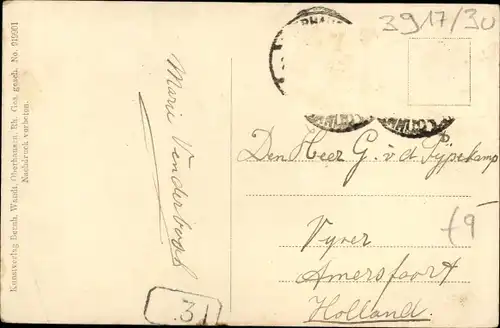 3917/30
Kunstverlag Bernh. Wandt, Oberhausen, Rh. Ges. gesch. No. 019601
Nachdruck verboten.
Marie Venderbosch
Den Heer G. v. d. Pijpekamp
Vyver
Amersfoort
Holland.
31